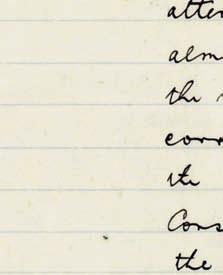 atten
alm
the
corr
the
Cons
the